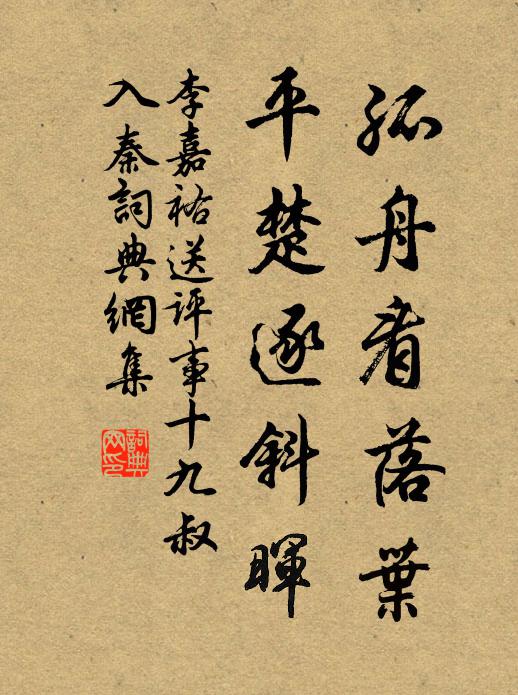 孤舟看落葉
平楚逐斜暉
李嘉祐送評事十九叔
入秦詞典網集
詞典网印